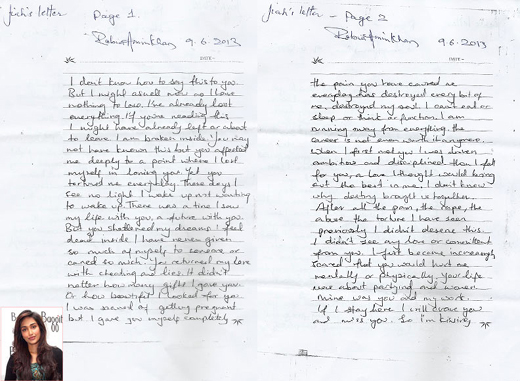 Jiah's letter
Page 1.
Rabia Amin Khan
9.6.2013
DATE:
I don't know how to say this to you
But I might aswell now as I have
nothing to lose. I've already lost
everything. If you're reading this
I might have already left or about
to leave. I am broken inside. You may
not have known this but you affected
me deeply to a point where I lost
myself in loving you. Yet you
tortured me everyday. These days I
see no light I wake up not wanting
to wake up. There was a time I saw
my life with you, a future with you.
But you shattered my dreams. I feel
dead inside. I have never given
so much of myself to someone or
cared so much. You returned my love
with cheating and lies. It didn't
matter how many gifts I gave you.
Or how beautiful I looked for you.
I was scared of getting pregnant
but I gave you myself completely
Jiah's letter - Page 2
Rabia Amin Khan
9.6.2013
DATE:
the pain you have caused me
everyday has destroyed every bit of
me, destroyed my soul. I can't eat or
sleep or think or function. I am
running away from everything. the
career is not even worth it anymore.
When I first met you I was driven,
ambitious and disciplined. Then I fell
for you, a love I thought would bring
out the best in me. I don't know
why destiny brought us together.
After all the pain, the rape, the
abuse, the torture I have seen
previously I didn't deserve this.
I didn't see any love or commitment
from you. I just became increasingly
scared that you would hurt me
mentally or physically. Your life
was about partying and women.
Mine was you and my work.
If I stay here I will crave you
and miss you. So I'm kissing
Baggit